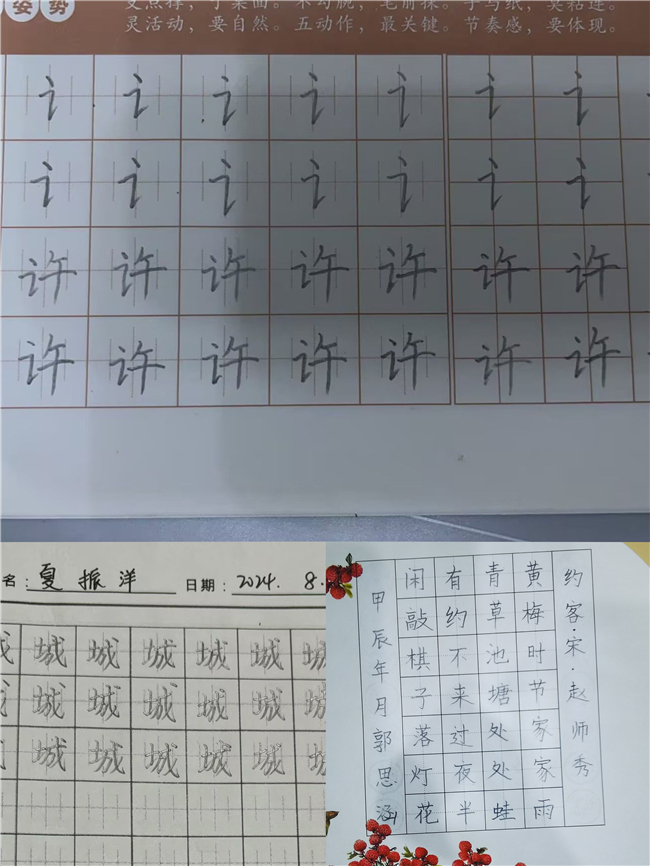 姿势
支点撑，于桌面。不勾腕，笔前。手与纸，莫粘连。
灵活动，要自然。五动作，最关键。节奏感，要体现。
讠讠讠讠讠讠讠
讠讠讠讠讠讠讠
许许许许许许许
许许许许许许许
名：夏振洋 日期：2024. 8.
城城城城城
城城城城城
城城城城城
约客·宋·赵师秀
黄梅时节家家雨
青草池塘处处蛙
有约不来过夜半
闲敲棋子落灯花
甲辰年月郭思涵